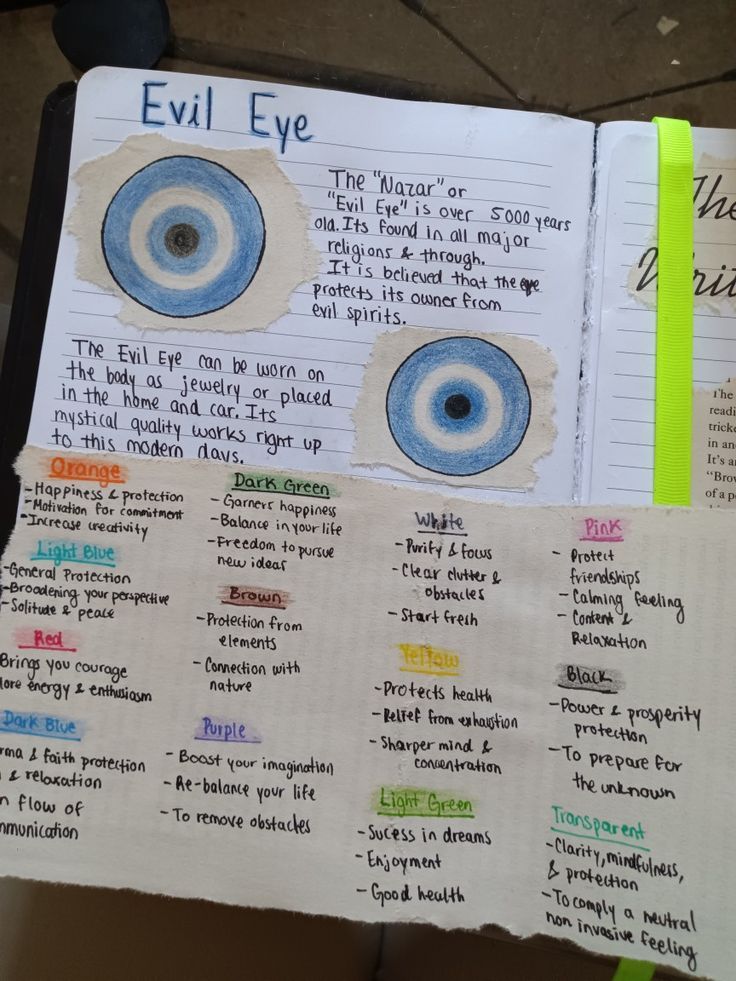 Evil Eye
The "Nazar" or
"Evil Eye" is over 5000 years
old. Its found in all major
religions & through.
It is believed that the eye
protects its owner from
evil spirits.
The Evil Eye can be worn on
the body as jewelry or placed
in the home and car. Its
mystical quality works right up
to this modern days.
Orange
- Happiness & protection
- Motivation for commitment
- Increase creativity
Light Blue
- General Protection
- Broadening your perspective
- Solitude & peace
Red
Brings you courage
ore energy & enthusiasm
Dark Blue
rma & faith protection
& relaxation
n flow of
mmunication
Dark Green
- Garners happiness
- Balance in your life
- Freedom to pursue
new ideas
Brown
- Protection from
elements
- Connection with
nature
Purple
- Boost your imagination
- Re-balance your life
- To remove obstacles
White
- Purify & focus
- Clear clutter &
obstacles
- Start fresh
Yellow
- Protects health
- Relief from exhaustion
- Sharper mind &
concentration
Light Green
- Sucess in dreams
- Enjoyment
- Good health
Pink
- Protect
friendships
- Calming feeling
- Content &
Relaxation
Black
- Power & prosperity
protection
- To prepare for
the unknown
Transparent
- Clarity, mindfulness,
& protection
- To comply a neutral
non invasive feeling
The
Writ
The
readi
tricke
in an
It's a
"Brow
of a p